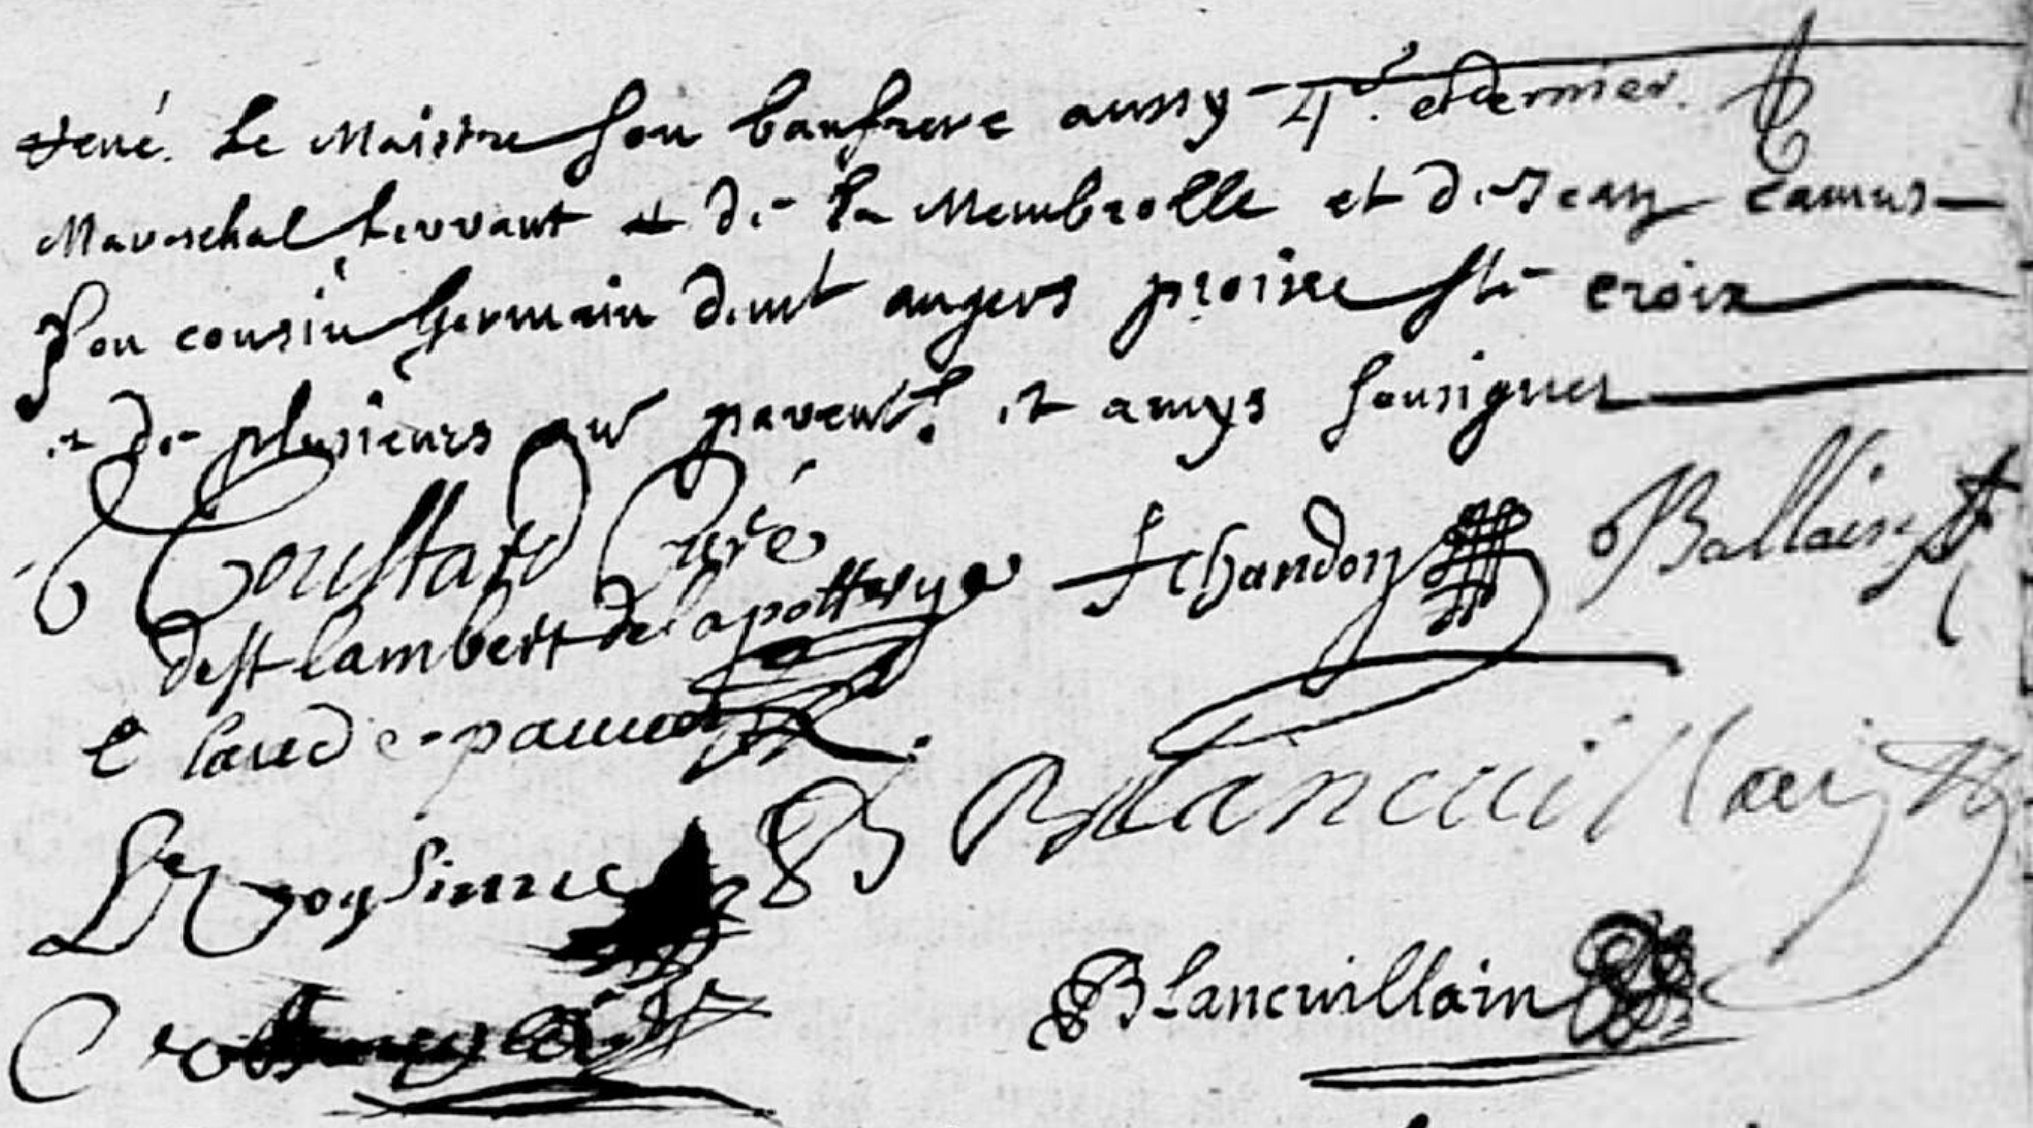 René Le Maistre son baufrere aussy
4e. et dernier.
Mareschal servant de la Membrolle et de Jean camus
son cousin germain demt angers proisse ste croix
et de plusieurs aur parents et amys sousignes
Coustard Curé
de st lambert de la potterye
F chandon
Ballain
Claude paumard
Blancvillain
L Roysinne
Blancvillain